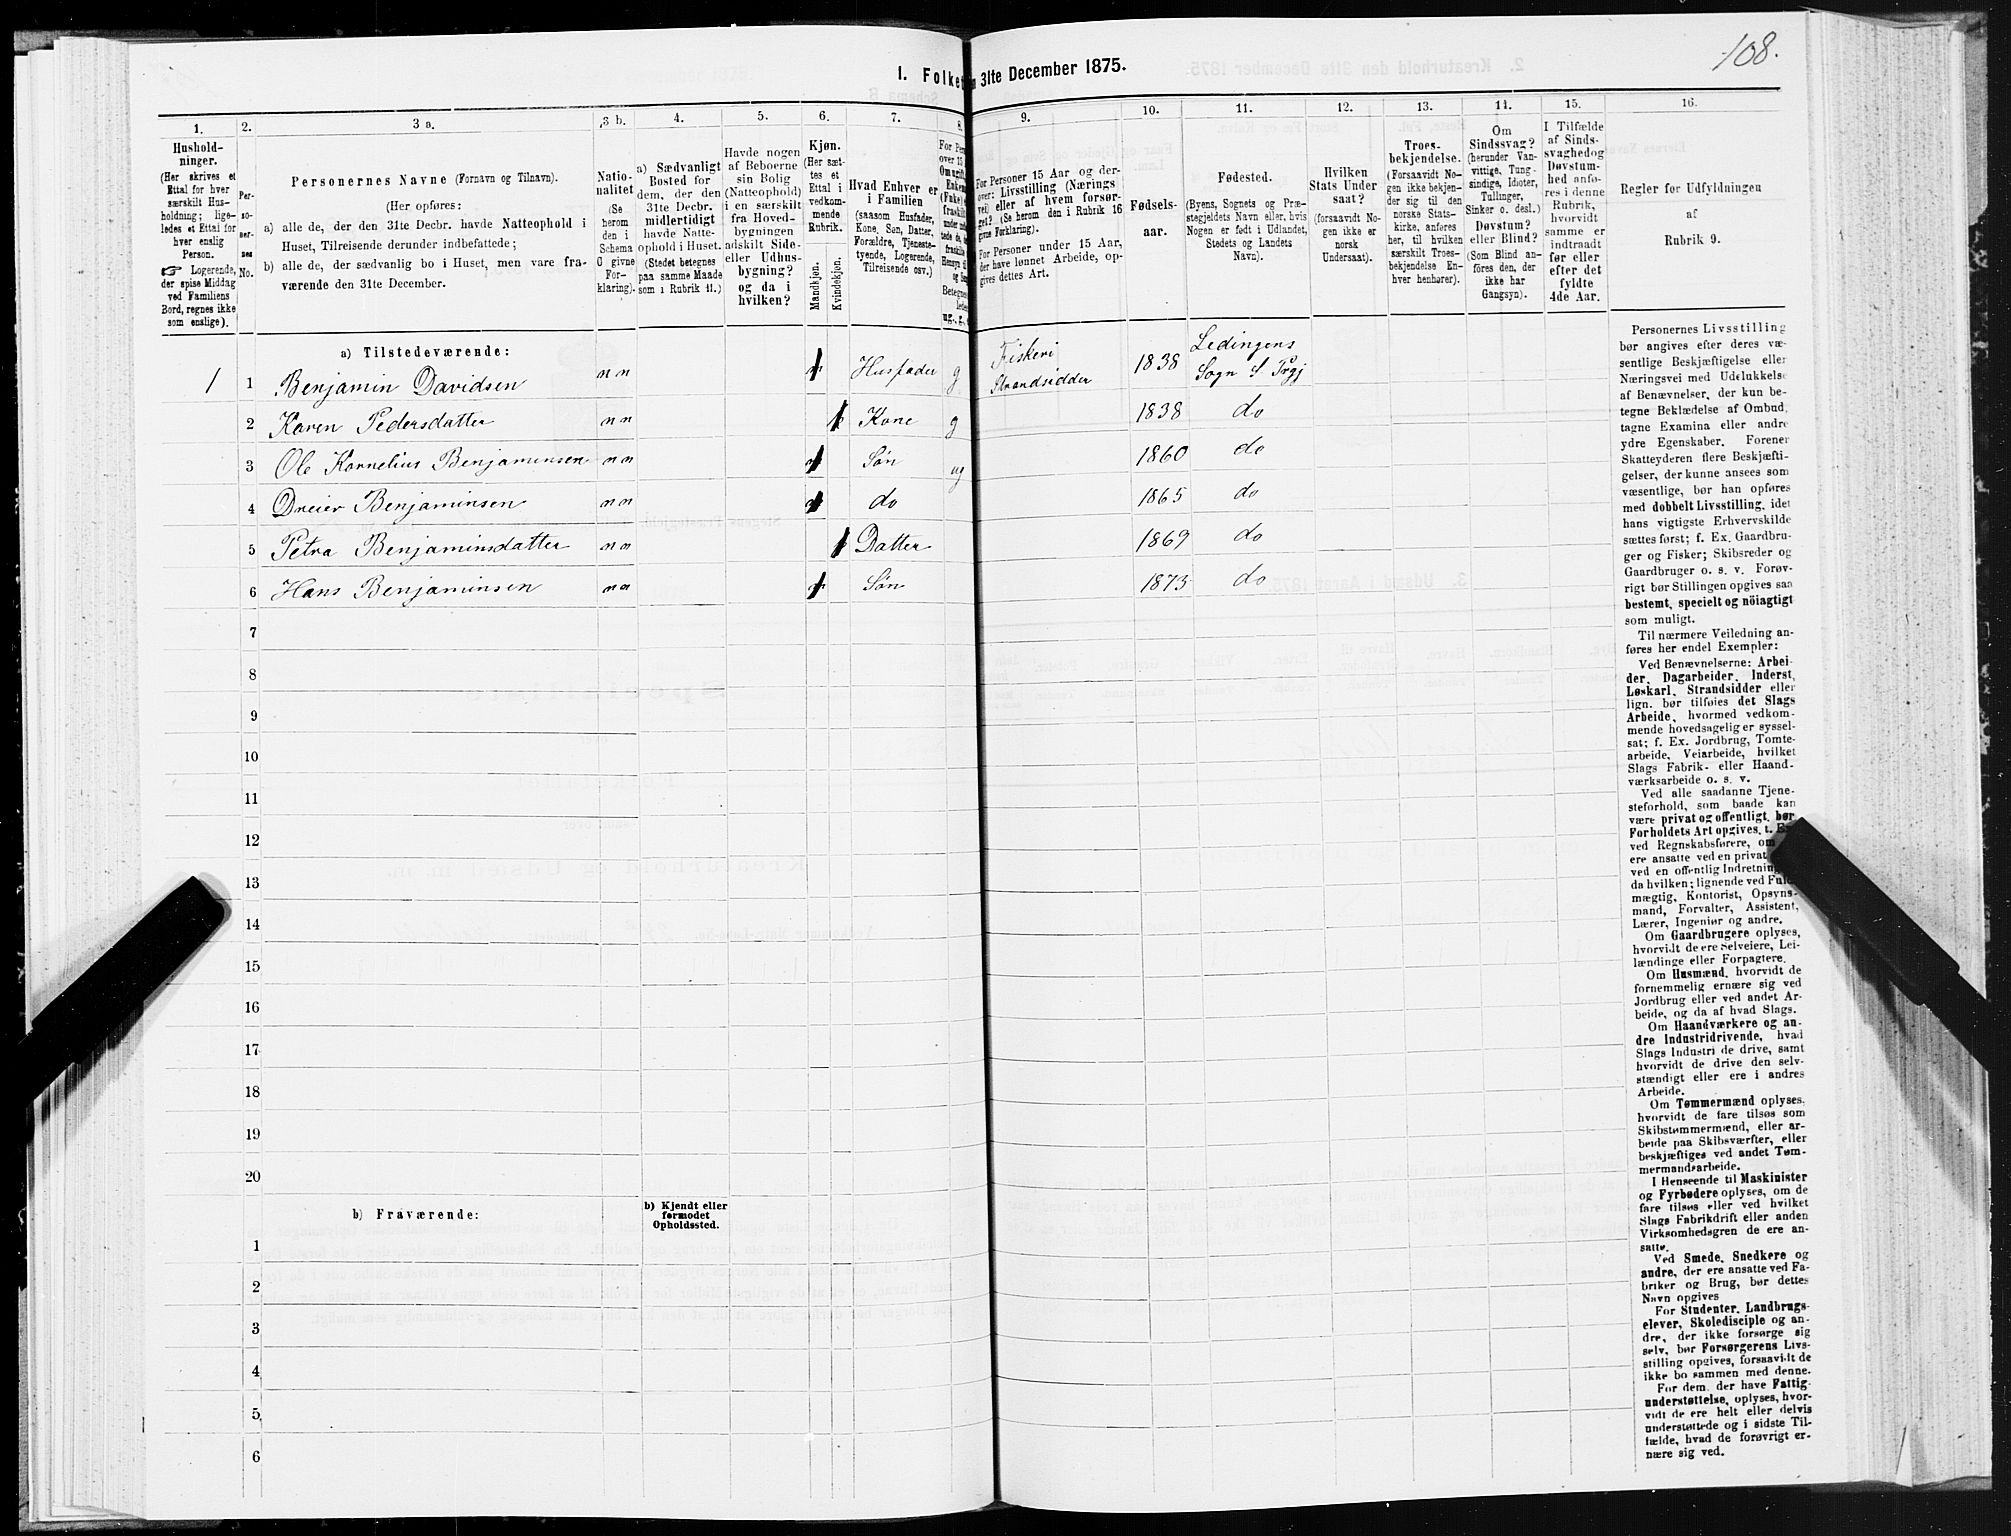 108.
I. Folket
n 31te December 1875.
1.
2.
3 a.
3 b.
4.
5.
6.
7.
8.
9.
10.
11.
12.
13.
14.
15.
16.
Hushold-
ninger.
(Her skrives et
Ettal for hver
særskilt Hus-
holdning; lige-
ledes et Ettal for
hver enslig
Person.
☞ Logerende,
der spise Middag
ved Familiens
Bord, regnes ikke
som enslige).
Per-
so-
ner-
nes
No.
Personernes Navne (Fornavn og Tilnavn).
(Her opføres:
a) alle de, der den 31te Decbr. havde Natteophold i
Huset, Tilreisende derunder indbefattede;
b) alle de, der sædvanlig bo i Huset, men vare fra-
værende den 31te December.
Natio-
nalitet
(Se
herom
den i
Schema
C givne
For-
klaring).
a) Sædvanligt
Bosted for
dem, der den
31te Decbr.
midlertidigt
havde Natte-
ophold i Huset.
(Stedet betegnes
paa samme Maade
som i Rubrik 11.)
Havde nogen
af Beboerne
sin Bolig
(Natteophold)
i en særskilt
fra Hoved-
bygningen
adskilt Side-
eller Udhus-
bygning?
og da i
hvilken?
Kjøn.
(Her sæt-
tes et
Ettal i
vedkom-
mende
Rubrik.
Mandkjøn.
Kvindekjøn.
Hvad Enhver er
i Familien
(saasom Husfader,
Kone, Søn, Datter,
Forældre, Tjeneste-
tyende, Logerende,
Tilreisende osv.)
For Personer 15 Aar og der-
over: Livsstilling (Nærings
vei) eller af hvem forsør-
get? (Se herom den i Rubrik 16
givne Forklaring).
For Personer under 15 Aar,
der have lønnet Arbeide, op-
gives dettes Art.
Fødsels-
aar.
Fødested.
(Byens, Sognets og Præ-
stegjeldets Navn eller, hvis
Nogen er født i Udlandet,
Stedets og Landets
Navn).
Hvilken
Stats Under
saat?
(forsaavidt No-
gen ikke er
norsk
Undersaat).
Troes-
bekjendelse.
(Forsaavidt No-
gen ikke bekjen-
der sig til den
norske Stats-
kirke, anføres
her, til hvilken
særskilt Troes-
bekjendelse En-
hver henhører).
Om
Sindssvag?
(herunder Van-
vittige, Tung-
sindige, Idioter,
Tullinger,
Sinker o. desl.)
Døvstum?
eller Blind?
(Som Blind an-
føres den, der
ikke har
Gangsyn).
I Tilfælde
af Sinds-
svaghedog
Døvstum-
hed anfø-
res i denne
Rubrik,
hvorvidt
samme er
indtraadt
før eller
efter det
fyldte
4de Aar.
Regler før Udfyldningen
af
Rubrik 9.
a) Tilstedeværende:
1 1 Benjamin Davidsen nn Husfader g Fiskeri Strandsidder 1838 Ledingens Sogn & Prgj
2 Karen Pedersdatter nn Kone g 1838 do
3 Ole Kornelius Benjaminsen nn Søn ug 1860 do
4 Dreier Benjaminsen nn do 1865 do
5 Petra Benjaminsdatter nn Datter 1869 do
6 Hans Benjaminsen nn Søn 1873 do
7
8
9
10
11
12
13
14
15
16
17
18
19
20
b) Fraværende:
b) Kjendt eller
formodet
Opholdssted.
1
2
3
4
5
6
Personernes Livsstilling
bør angives efter deres væ-
sentlige Beskjæftigelse eller
Næringsvei med Udelukkelse
af Benævnelser, der kun be-
tegne Beklædelse af Ombud,
tagne Examina eller andre
ydre Egenskaber. Forener
Skatteyderen flere Beskjæfti-
gelser, der kunne ansees som
væsentlige, bør han opføres
med dobbelt Livsstilling, idet
hans vigtigste Erhvervskilde
sættes først; f. Ex. Gaardbru-
ger og Fisker; Skibsreder og
Gaardbruger o. s. v. Forøv-
rigt bør Stillingen opgives saa
bestemt, specielt og nöiagtigt
som muligt.
Til nærmere Veiledning an-
føres her endel Exempler:
Ved Benævnelserne: Arbei-
der, Dagarbeider, Inderst,
Løskarl, Strandsidder eller
lign. bør tilføies det Slags
Arbeide, hvormed vedkom-
mende hovedsagelig er syssel-
sat; f. Ex. Jordbrug, Tomte-
arbeide, Veiarbeide, hvilket
Slags Fabrik- eller Haand-
værksarbeide o. s. v.
Ved alle saadanne Tjene-
steforhold, som baade kan
være privat og offentligt, bør
Forholdets Art opgives, t. Ex.
ved Regnskabsførere, om
ere ansatte ved en privat
ved en offentlig Indretning
da hvilken; lignende ved Fuld-
mægtig, Kontorist, Opsyns-
mand, Forvalter, Assistent,
Lærer, Ingeniør og andre.
Om Gaardbrugere oplyses,
hvorvidt de ere Selveiere, Lei-
lændinge eller Forpagtere.
Om Husmænd, hvorvidt de
fornemmelig ernære sig ved
Jordbrug eller ved andet Ar-
beide, og da af hvad Slags.
Om Haandværkere og an-
dre Industridrivende, hvad
Slags Industri de drive, samt
hvorvidt de drive den selv-
stændigt eller ere i andres
Arbeide.
Om Tømmermænd oplyses,
hvorvidt de fare tilsøs som
Skibstømmermænd, eller ar-
beide paa Skibsværfter, eller
beskjæftiges ved andet Tøm-
mermandsarbeide.
I Henseende til Maskinister
og Fyrbødere oplyses, om de
fare tilsøs eller ved hvilket
Slags Fabrikdrift eller anden
Virksomhedsgren de ere an-
satte.
Ved Smede, Snedkere og
andre, der ere ansatte ved Fa-
briker og Brug, bør dettes
Navn opgives
For Studenter, Landbrugs-
elever, Skoledisciple og an-
dre, der ikke forsørge sig
selv, bør Forsørgerens Livs-
stilling opgives, forsaavidt de
ikke bo sammen med denne.
For dem, der have Fattig-
understøttelse, oplyses, hvor-
vidt de ere helt eller delvis
understøttede og i sidste Til-
fælde, hvad de forøvrigt er-
nære sig ved.